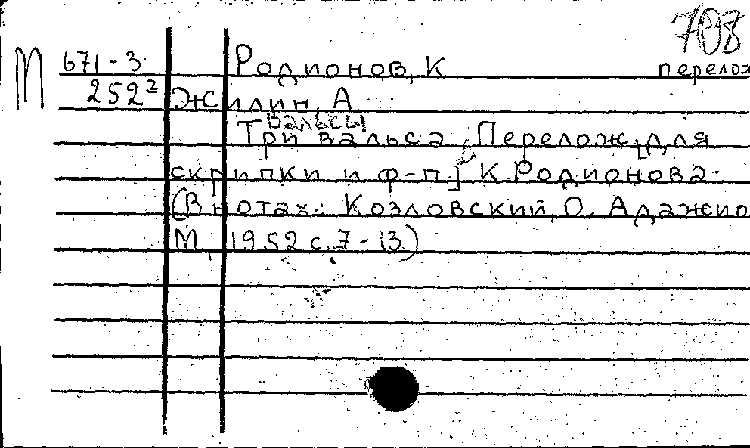 708
М 671-3 Родионов, К
перелож
252² Жилин, А
Вальсы
Три вальса. Перелож. [для
скрипки и ф-п.] К. Родионова.
(В нотах: Козловский, О. Адажио
М, 1952 с. 7-13)